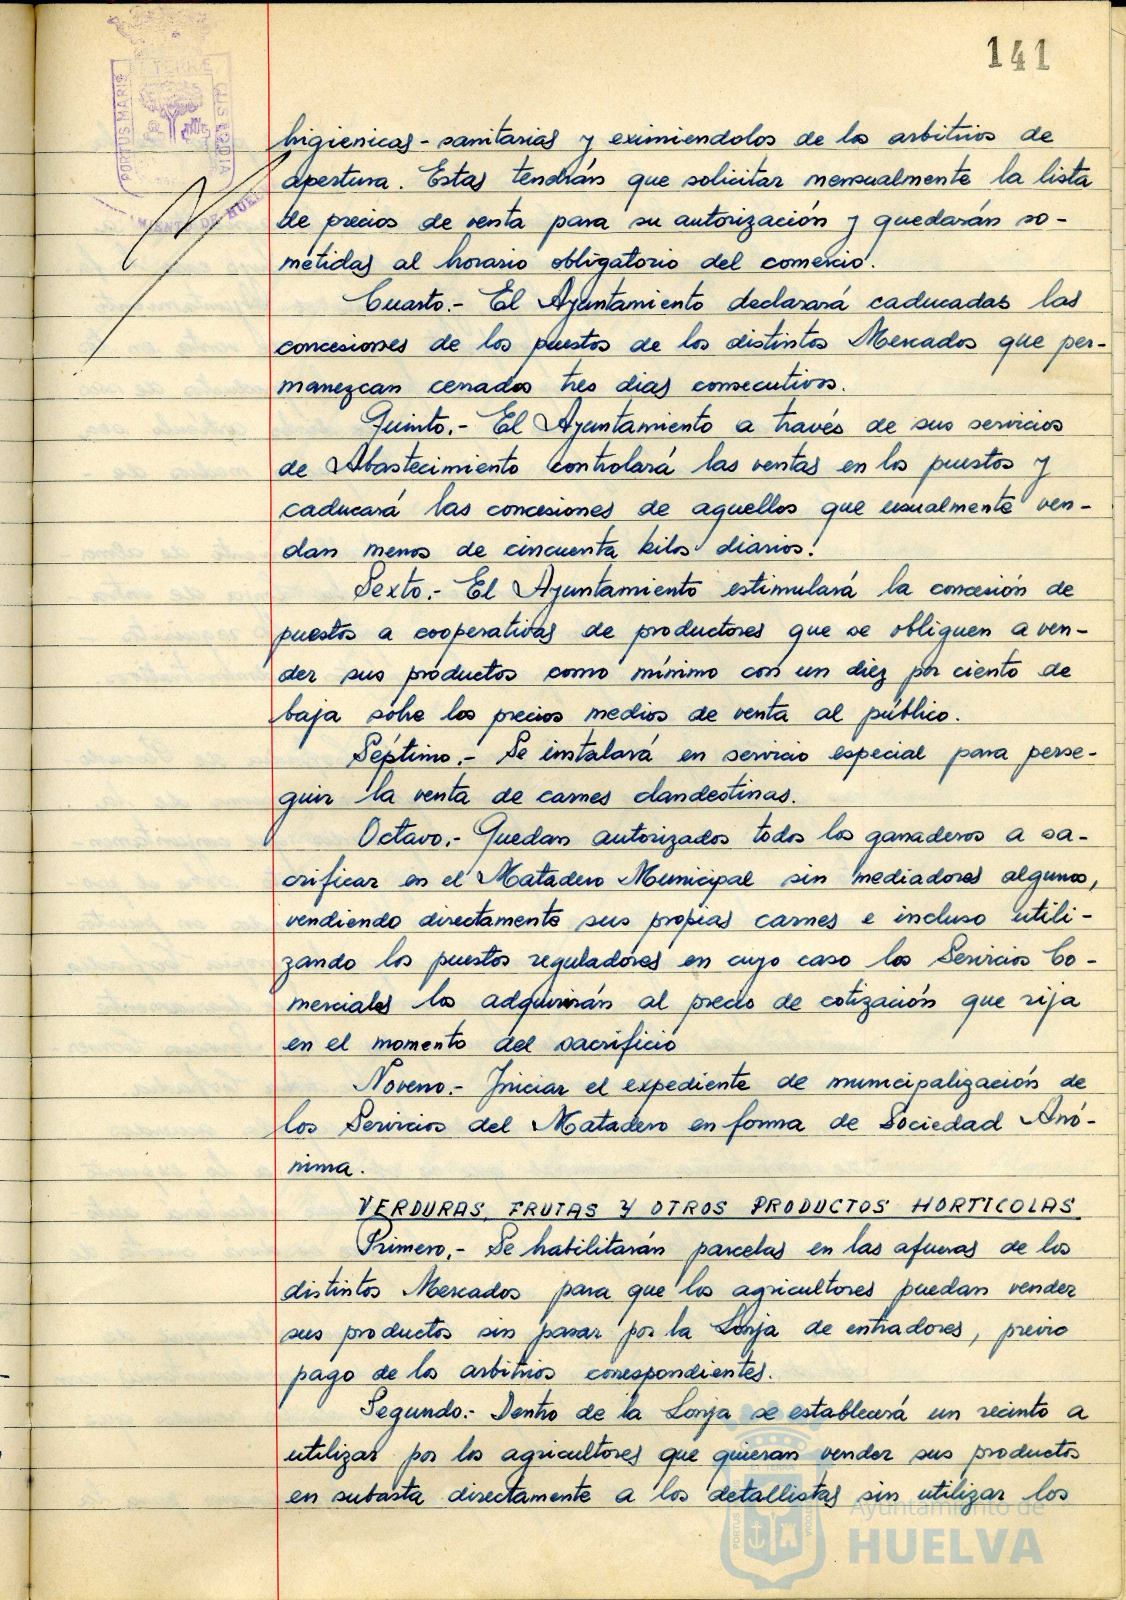 141
PORTUS MARIS ET TERRE CUSTODIA
AYUNTAMIENTO DE HUELVA
higienicas - sanitarias y eximiendolos de los arbitrios de
apertura. Estas tendrán que solicitar mensualmente la lista
de precios de venta para su autorización y quedarán so-
metidas al horario obligatorio del comercio.
Cuarto.- El Ayuntamiento declarará caducadas las
concesiones de los puestos de los distintos Mercados que per-
manezcan cerrados tres dias consecutivos.
Quinto.- El Ayuntamiento a través de sus servicios
de Abastecimiento controlará las ventas en los puestos y
caducará las concesiones de aquellos que usualmente ven-
dan menos de cincuenta kilos diarios.
Sexto.- El Ayuntamiento estimulará la concesión de
puestos a cooperativas de productores que se obliguen a ven-
der sus productos como mínimo con un diez por ciento de
baja sobre los precios medios de venta al público.
Séptimo.- Se instalará en servicio especial para perse-
guir la venta de carnes clandestinas.
Octavo.- Quedan autorizados todos los ganaderos a sa-
crificar en el Matadero Municipal sin mediadores algunos,
vendiendo directamente sus propias carnes e incluso utili-
zando los puestos reguladores en cuyo caso los Servicios Co-
merciales los adquirirán al precio de cotización que rija
en el momento del sacrificio
Noveno.- Iniciar el expediente de municipalización de
los Servicios del Matadero en forma de Sociedad Anó-
nima.
VERDURAS, FRUTAS Y OTROS PRODUCTOS HORTICOLAS
Primero.- Se habilitarán parcelas en las afueras de los
distintos Mercados para que los agricultores puedan vender
sus productos sin pasar por la Lonja de entradores, previo
pago de los arbitrios correspondientes.
Segundo.- Dentro de la Lonja se establecerá un recinto a
utilizar por los agricultores que quieran vender sus productos
en subasta directamente a los detallistas sin utilizar los
Ayuntamiento de
HUELVA